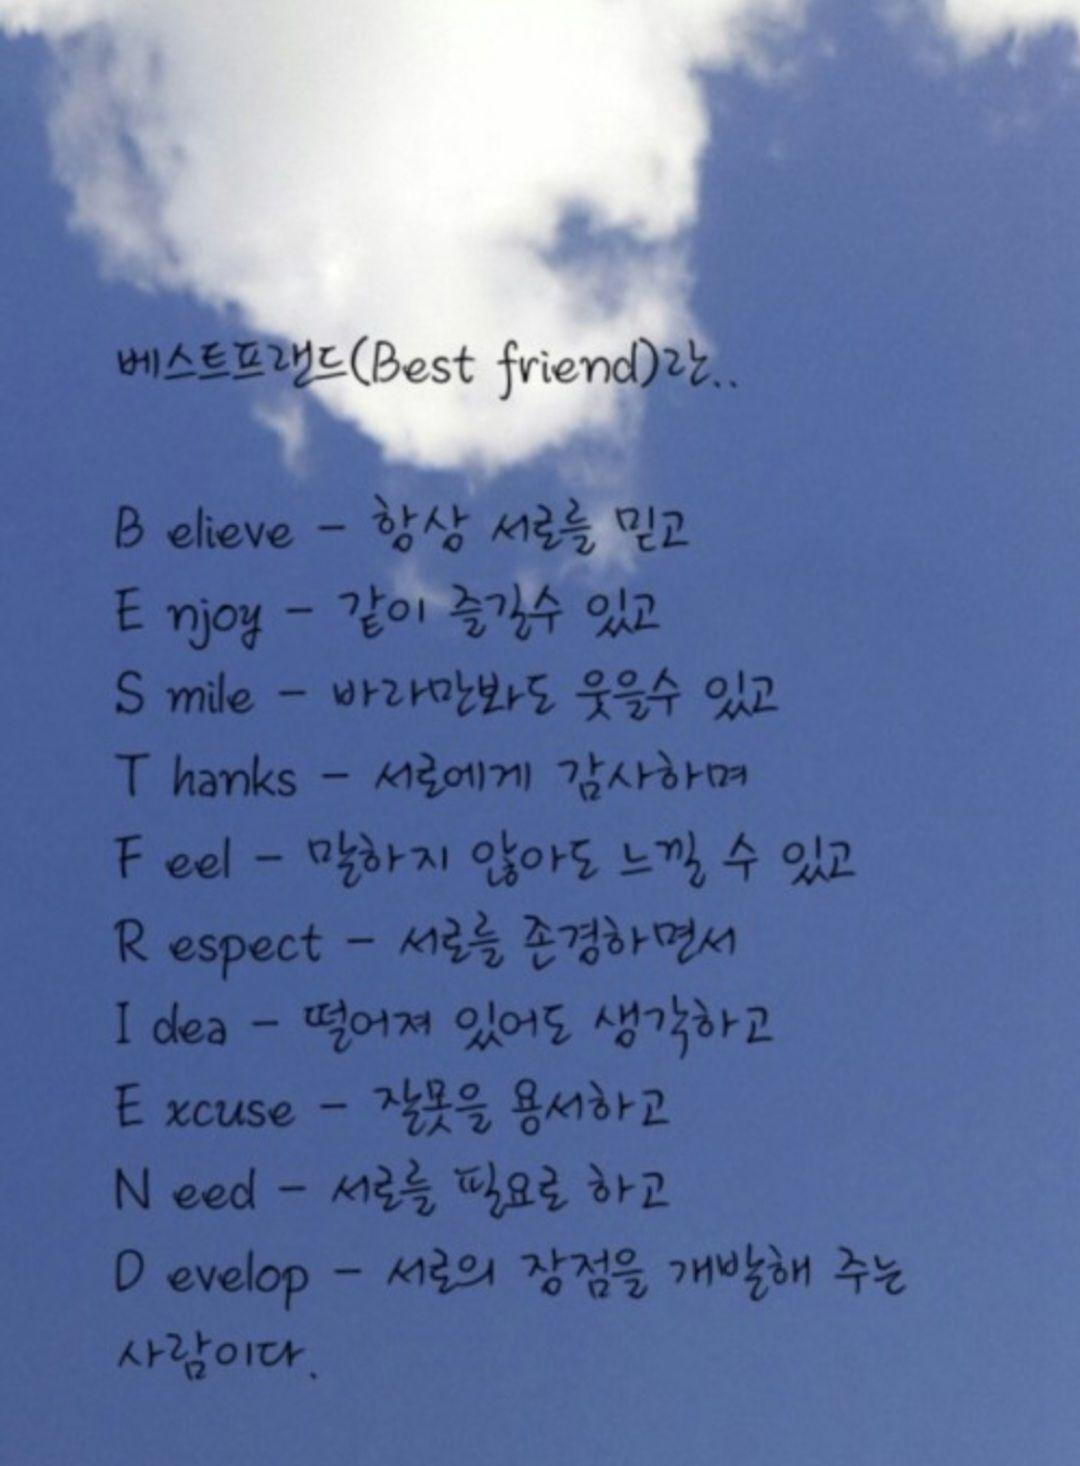 베스트프랜드(Best friend)란..
B elieve - 항상 서로를 믿고
E njoy - 같이 즐길수 있고
S mile - 바라만봐도 웃을수 있고
T hanks - 서로에게 감사하며
F eel - 말하지 않아도 느낄 수 있고
R espect - 서로를 존경하면서
I dea - 떨어져 있어도 생각하고
E xcuse - 잘못을 용서하고
N eed - 서로를 필요로 하고
D evelop - 서로의 장점을 개발해 주는
사람이다.